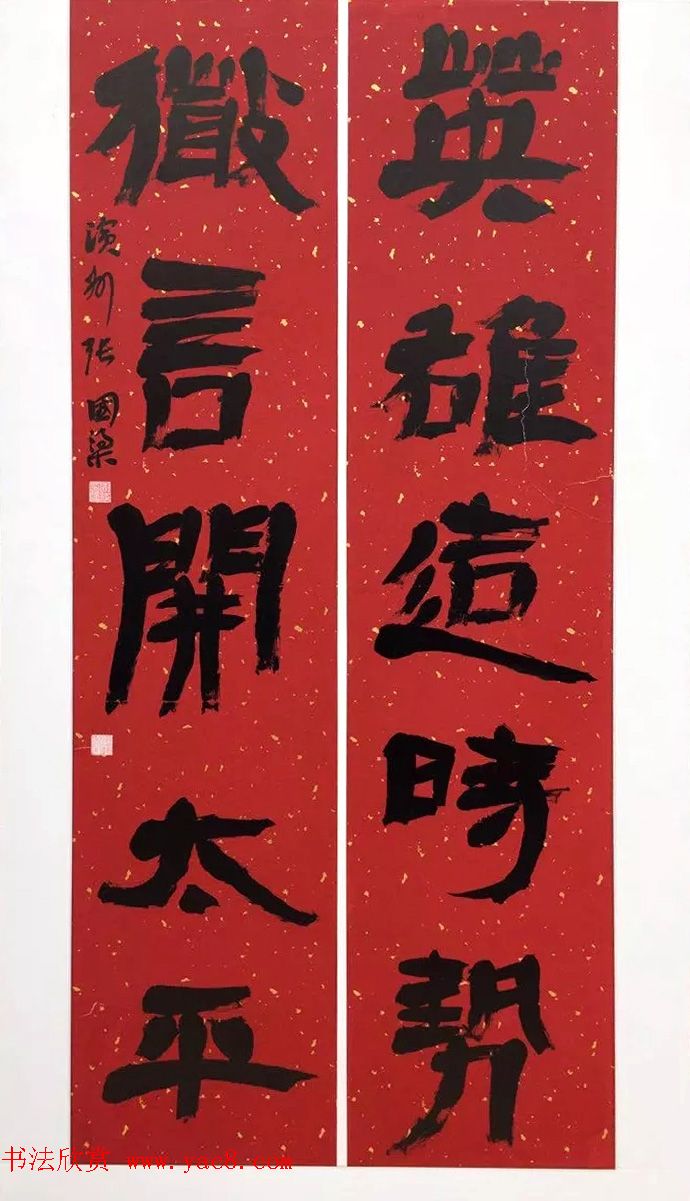 英雄造時勢
微言開太平
濱州張國梁
书法欣赏 www.yac8.com